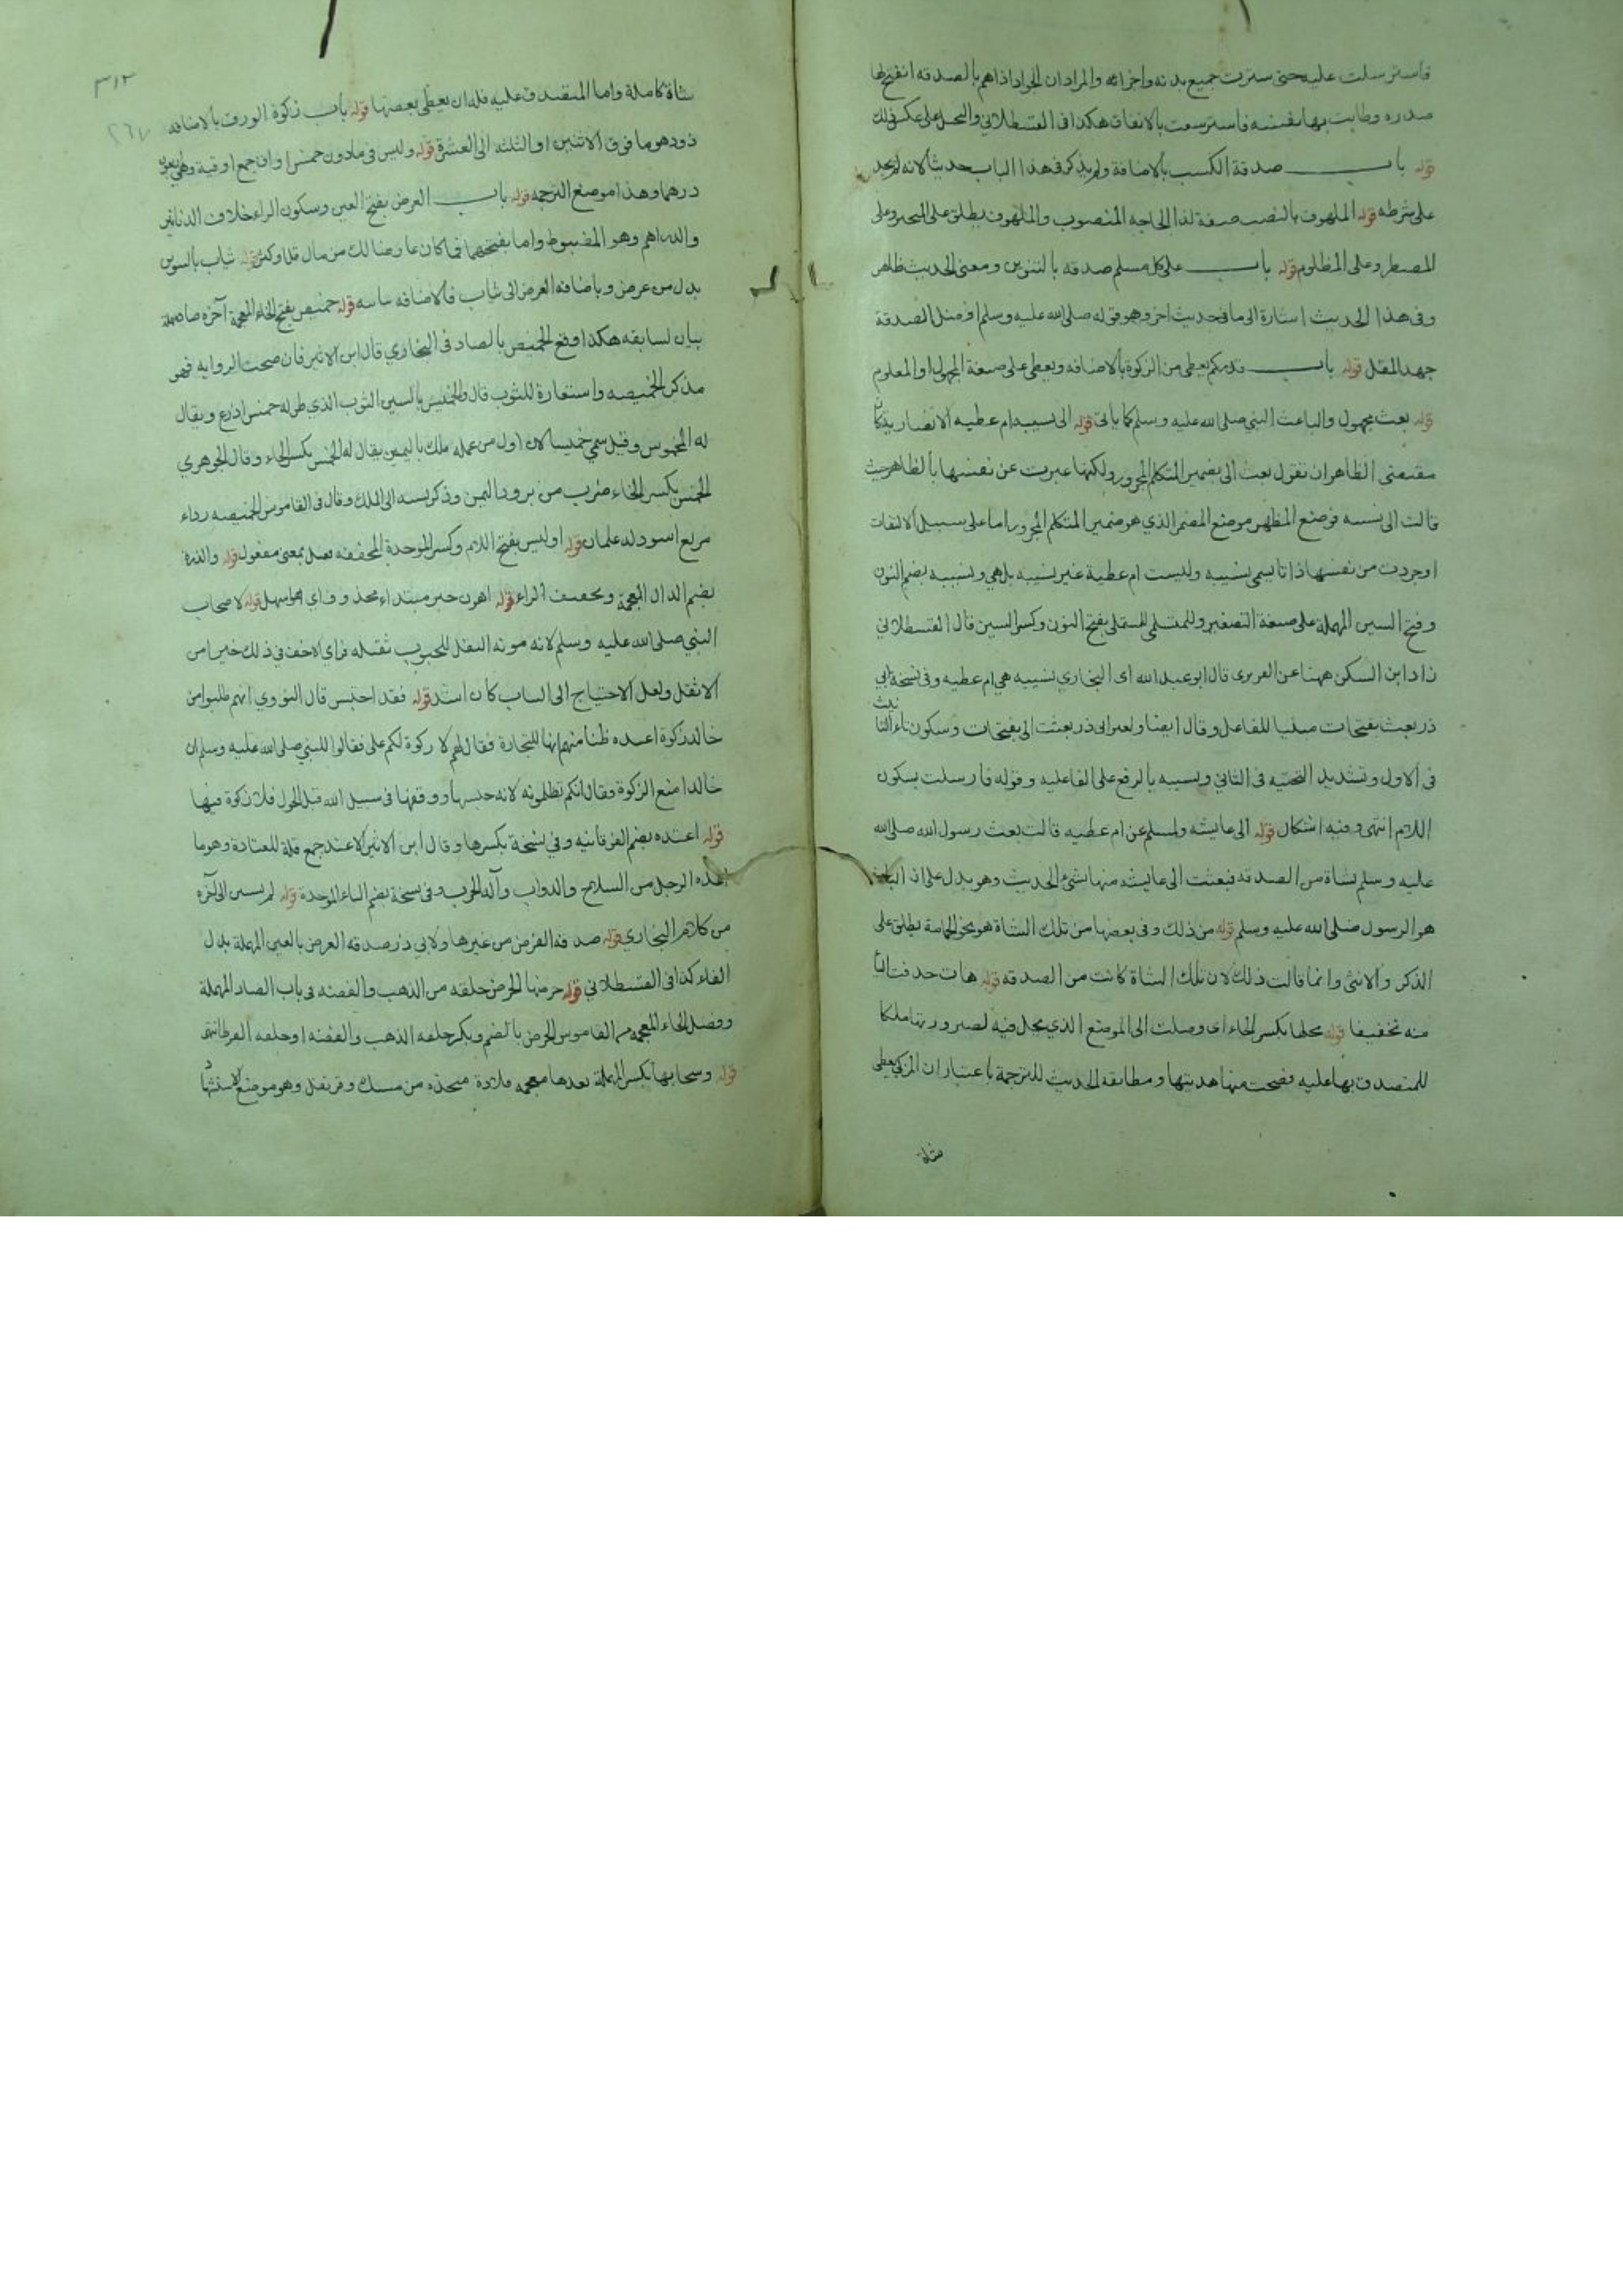 فاسترسلت عليه حتى سترت جميع بدنه واجزائه والمراد ان الجواد اذا هم بالصدقه انفتح لها
صدره وطابت بها نفسه فاسترسعت بالانفاق هكذا في القسطلاني والبخل على عكس ذلك
قوله باب صدقة الكسب بالاضافة ولم يذكر في هذا الباب حديثا لانه لم يجد
على شرطه قوله الملهوف بالنصب صفة لذا الحاجه المنصوب والملهوف يطلق على المتحير وعلى
المضطر وعلى المظلوم قوله باب على كل مسلم صدقه بالتنوين ومعنى الحديث ظاهر
وفي هذا الحديث اشارة الى ما في حديث اخر وهو قوله صلى الله عليه وسلم افضل الصدقة
جهد المقل قوله باب قدركم يعطى من الزكوة بالاضافه ويعطى على صيغة المجهول او المعلوم
قوله بعث مجهول والباعث النبي صلى الله عليه وسلم كما ياتي قوله الى نسيبه ام عطيه الانصارية كان
مقتضى الظاهر ان تقول بعث الي بضمير المتكلم المجرور ولكنها عبرت عن نفسها بالظاهر حيث
قالت الى نسيبه فوضع المظهر موضع المضمر الذي هو ضمير المتكلم المجرور اما على سبيل الالتفات
او جردت من نفسها ذاتا يسمى نسيبه وليست ام عطية غير نسيبه بل هي ونسيبه بضم النون
وفتح السين المهملة على صيغة التصغير وللمستملي بفتح النون وكسر السين قال القسطلاني
زاد ابن السكن ههنا عن الفربرى قال ابو عبد الله اى البخاري نسيبه هي ام عطيه وفي نسخة ابي
ذر بعث بفتحات مبنيا للفاعل وقال ايضا ولغير ابي ذر بعثت الي بفتحات وسكون تاء التانيث
في الاول وتشديد التحتيه في الثاني ونسيبه بالرفع على الفاعليه وقوله فارسلت بسكون
اللام انتهى وفيه اشكال قوله الى عايشه ولمسلم عن ام عطيه قالت بعث رسول الله صلى الله
عليه وسلم بشاة من الصدقه فبعثت الى عايشه منها بشئ الحديث وهو يدل على ان الباعث
هو الرسول صلى الله عليه وسلم قوله من ذلك وفي بعضها من تلك الشاة هو نحو الحمامة يطلق على
الذكر والانثى وانما قالت ذلك لان تلك الشاة كانت من الصدقه قوله هات حذفت الياء
منه تخفيفا قوله محلها بكسر الحاء اى وصلت الى الموضع الذي يحل فيه لصيرورتها ملكا
للمتصدق بها عليه فصحت منها هديتها ومطابقه الحديث للترجمة باعتبار ان المزكي يعطى
شاة
٣١٢
٢٦٧
شاة كاملة واما المتصدق عليه فله ان يعطى بعضها قوله باب زكوة الورق بالاضافه
ذود هو ما فوق الاثنين او الثلثه الى العشرة قوله وليس في مادون خمس اواق جمع اوقية وهي اربعون
درهما وهذا موضع الترجمه قوله باب العرض بفتح العين وسكون الراء خلاف الدنانير
والدراهم وهو المضبوط واما بفتحهما فما كان عارضا لك من مال قل او كثر قوله ثياب بالتنوين
بدل من عرض وباضافه العرض الى ثياب فالاضافه بيانيه قوله خميص بفتح الخاء المعجمة آخره صاد مهملة
بيان لسابقه هكذا وقع الخميص بالصاد في البخاري قال ابن الاثير فان صحت الروايه فهو
مذكر الخميصه واستعارة للثوب قال والخميس بالسين الثوب الذي طوله خمس اذرع ويقال
له المخموس وقيل سمي خميسا لان اول من عمله ملك باليمن يقال له الخمس بكسر الخاء وقال الجوهري
الخمس بكسر الخاء ضرب من برود اليمن وذكر نسبه الى الملك وقال في القاموس الخميصه رداء
مربع اسود له علمان قوله او لبيس بفتح اللام وكسر الموحدة المخففه فعيل بمعنى مفعول قوله والذرة
بضم الذال المعجمة وتخفيف الراء قوله اهون خبر مبتداء محذوف اي هو اسهل قوله لاصحاب
النبي صلى الله عليه وسلم لانه مونه النقل للحبوب ثقيله فراى الاخف في ذلك خيرا من
الاثقل ولعل الاحتياج الى الثياب كان اشد قوله فقد احتبس قال النووي انهم طلبوا من
خالد زكوة اعتده ظنا منهم انها للتجارة فقال لهم لا زكوة لكم على فقالوا للنبي صلى الله عليه وسلم ان
خالدا منع الزكوة فقال انكم تظلمونه لانه حبسها ووقفها في سبيل الله قبل الحول فلا زكوة فيها
قوله اعتده بضم الفوقانيه وفي نسخة بكسرها وقال ابن الاثير الاعتد جمع قلة للعتاد وهو ما
اعده الرجل من السلاح والدواب وآلة الحرب وفي نسخة بضم الباء الموحدة قوله لم يستثن الى آخره
من كلام البخاري قوله صدقه الفرض من غيرها ولابي ذر صدقه العرض بالعين المهملة بدل
الفاء كذا في القسطلاني قوله خرصها الخرص حلقه من الذهب والفضه في باب الصاد المهملة
وفصل الخاء المعجمه من القاموس الخرص بالضم ويكسر حلقه الذهب والفضه او حلقه القرط انتهى
قوله وسخابها بكسر المهملة بعدها معجمه قلادة متخذه من مسك وقرنفل وهو موضع الاستشهاد